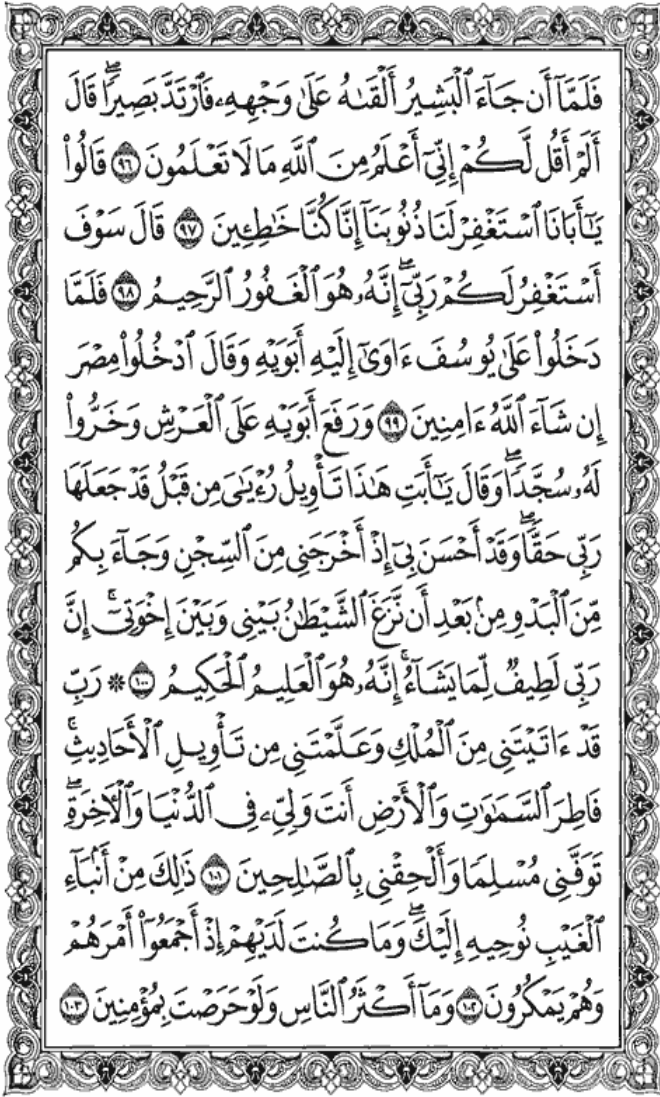 فَلَمَّآ أَن جَآءَ ٱلۡبَشِيرُ أَلۡقَىٰهُ عَلَىٰ وَجۡهِهِۦ فَٱرۡتَدَّ بَصِيرٗاۖ قَالَ
أَلَمۡ أَقُل لَّكُمۡ إِنِّيٓ أَعۡلَمُ مِنَ ٱللَّهِ مَا لَا تَعۡلَمُونَ ٩٦ قَالُواْ
يَٰٓأَبَانَا ٱسۡتَغۡفِرۡ لَنَا ذُنُوبَنَآ إِنَّا كُنَّا خَٰطِـِٔينَ ٩٧ قَالَ سَوۡفَ
أَسۡتَغۡفِرُ لَكُمۡ رَبِّيٓۖ إِنَّهُۥ هُوَ ٱلۡغَفُورُ ٱلرَّحِيمُ ٩٨ فَلَمَّا
دَخَلُواْ عَلَىٰ يُوسُفَ ءَاوَىٰٓ إِلَيۡهِ أَبَوَيۡهِ وَقَالَ ٱدۡخُلُواْ مِصۡرَ
إِن شَآءَ ٱللَّهُ ءَامِنِينَ ٩٩ وَرَفَعَ أَبَوَيۡهِ عَلَى ٱلۡعَرۡشِ وَخَرُّواْ
لَهُۥ سُجَّدٗاۖ وَقَالَ يَٰٓأَبَتِ هَٰذَا تَأۡوِيلُ رُءۡيَٰيَ مِن قَبۡلُ قَدۡ جَعَلَهَا
رَبِّي حَقّٗاۖ وَقَدۡ أَحۡسَنَ بِيٓ إِذۡ أَخۡرَجَنِي مِنَ ٱلسِّجۡنِ وَجَآءَ بِكُم
مِّنَ ٱلۡبَدۡوِ مِنۢ بَعۡدِ أَن نَّزَغَ ٱلشَّيۡطَٰنُ بَيۡنِي وَبَيۡنَ إِخۡوَتِيٓۚ إِنَّ
رَبِّي لَطِيفٞ لِّمَا يَشَآءُۚ إِنَّهُۥ هُوَ ٱلۡعَلِيمُ ٱلۡحَكِيمُ ١٠٠ ۞ رَبِّ
قَدۡ ءَاتَيۡتَنِي مِنَ ٱلۡمُلۡكِ وَعَلَّمۡتَنِي مِن تَأۡوِيلِ ٱلۡأَحَادِيثِۚ
فَاطِرَ ٱلسَّمَٰوَٰتِ وَٱلۡأَرۡضِ أَنتَ وَلِيِّۦ فِي ٱلدُّنۡيَا وَٱلۡأٓخِرَةِۖ
تَوَفَّنِي مُسۡلِمٗا وَأَلۡحِقۡنِي بِٱلصَّٰلِحِينَ ١٠١ ذَٰلِكَ مِنۡ أَنۢبَآءِ
ٱلۡغَيۡبِ نُوحِيهِ إِلَيۡكَۖ وَمَا كُنتَ لَدَيۡهِمۡ إِذۡ أَجۡمَعُوٓاْ أَمۡرَهُمۡ
وَهُمۡ يَمۡكُرُونَ ١٠٢ وَمَآ أَكۡثَرُ ٱلنَّاسِ وَلَوۡ حَرَصۡتَ بِمُؤۡمِنِينَ ١٠٣